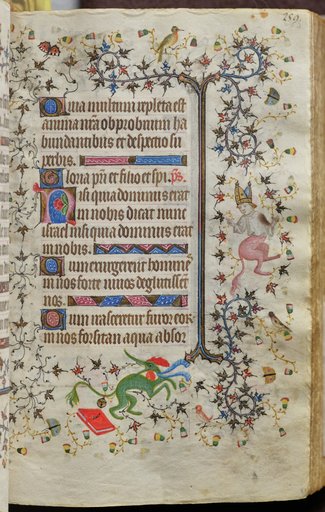 259
Quia multum repleta est
anima nr̄a obprobrium ha
bundantibus et despectio su
perbis.
Gloria pr̄i et filio et spi. ps̄.
Nisi quia dominus erat
in nobis dicat nunc
israel nisi quia dominus erat
in nobis
Cum exurgerent homines
in nos forte vivos deglutissēt
nos.
Cum irasceretur furor eor
in nos forsitan aqua absor